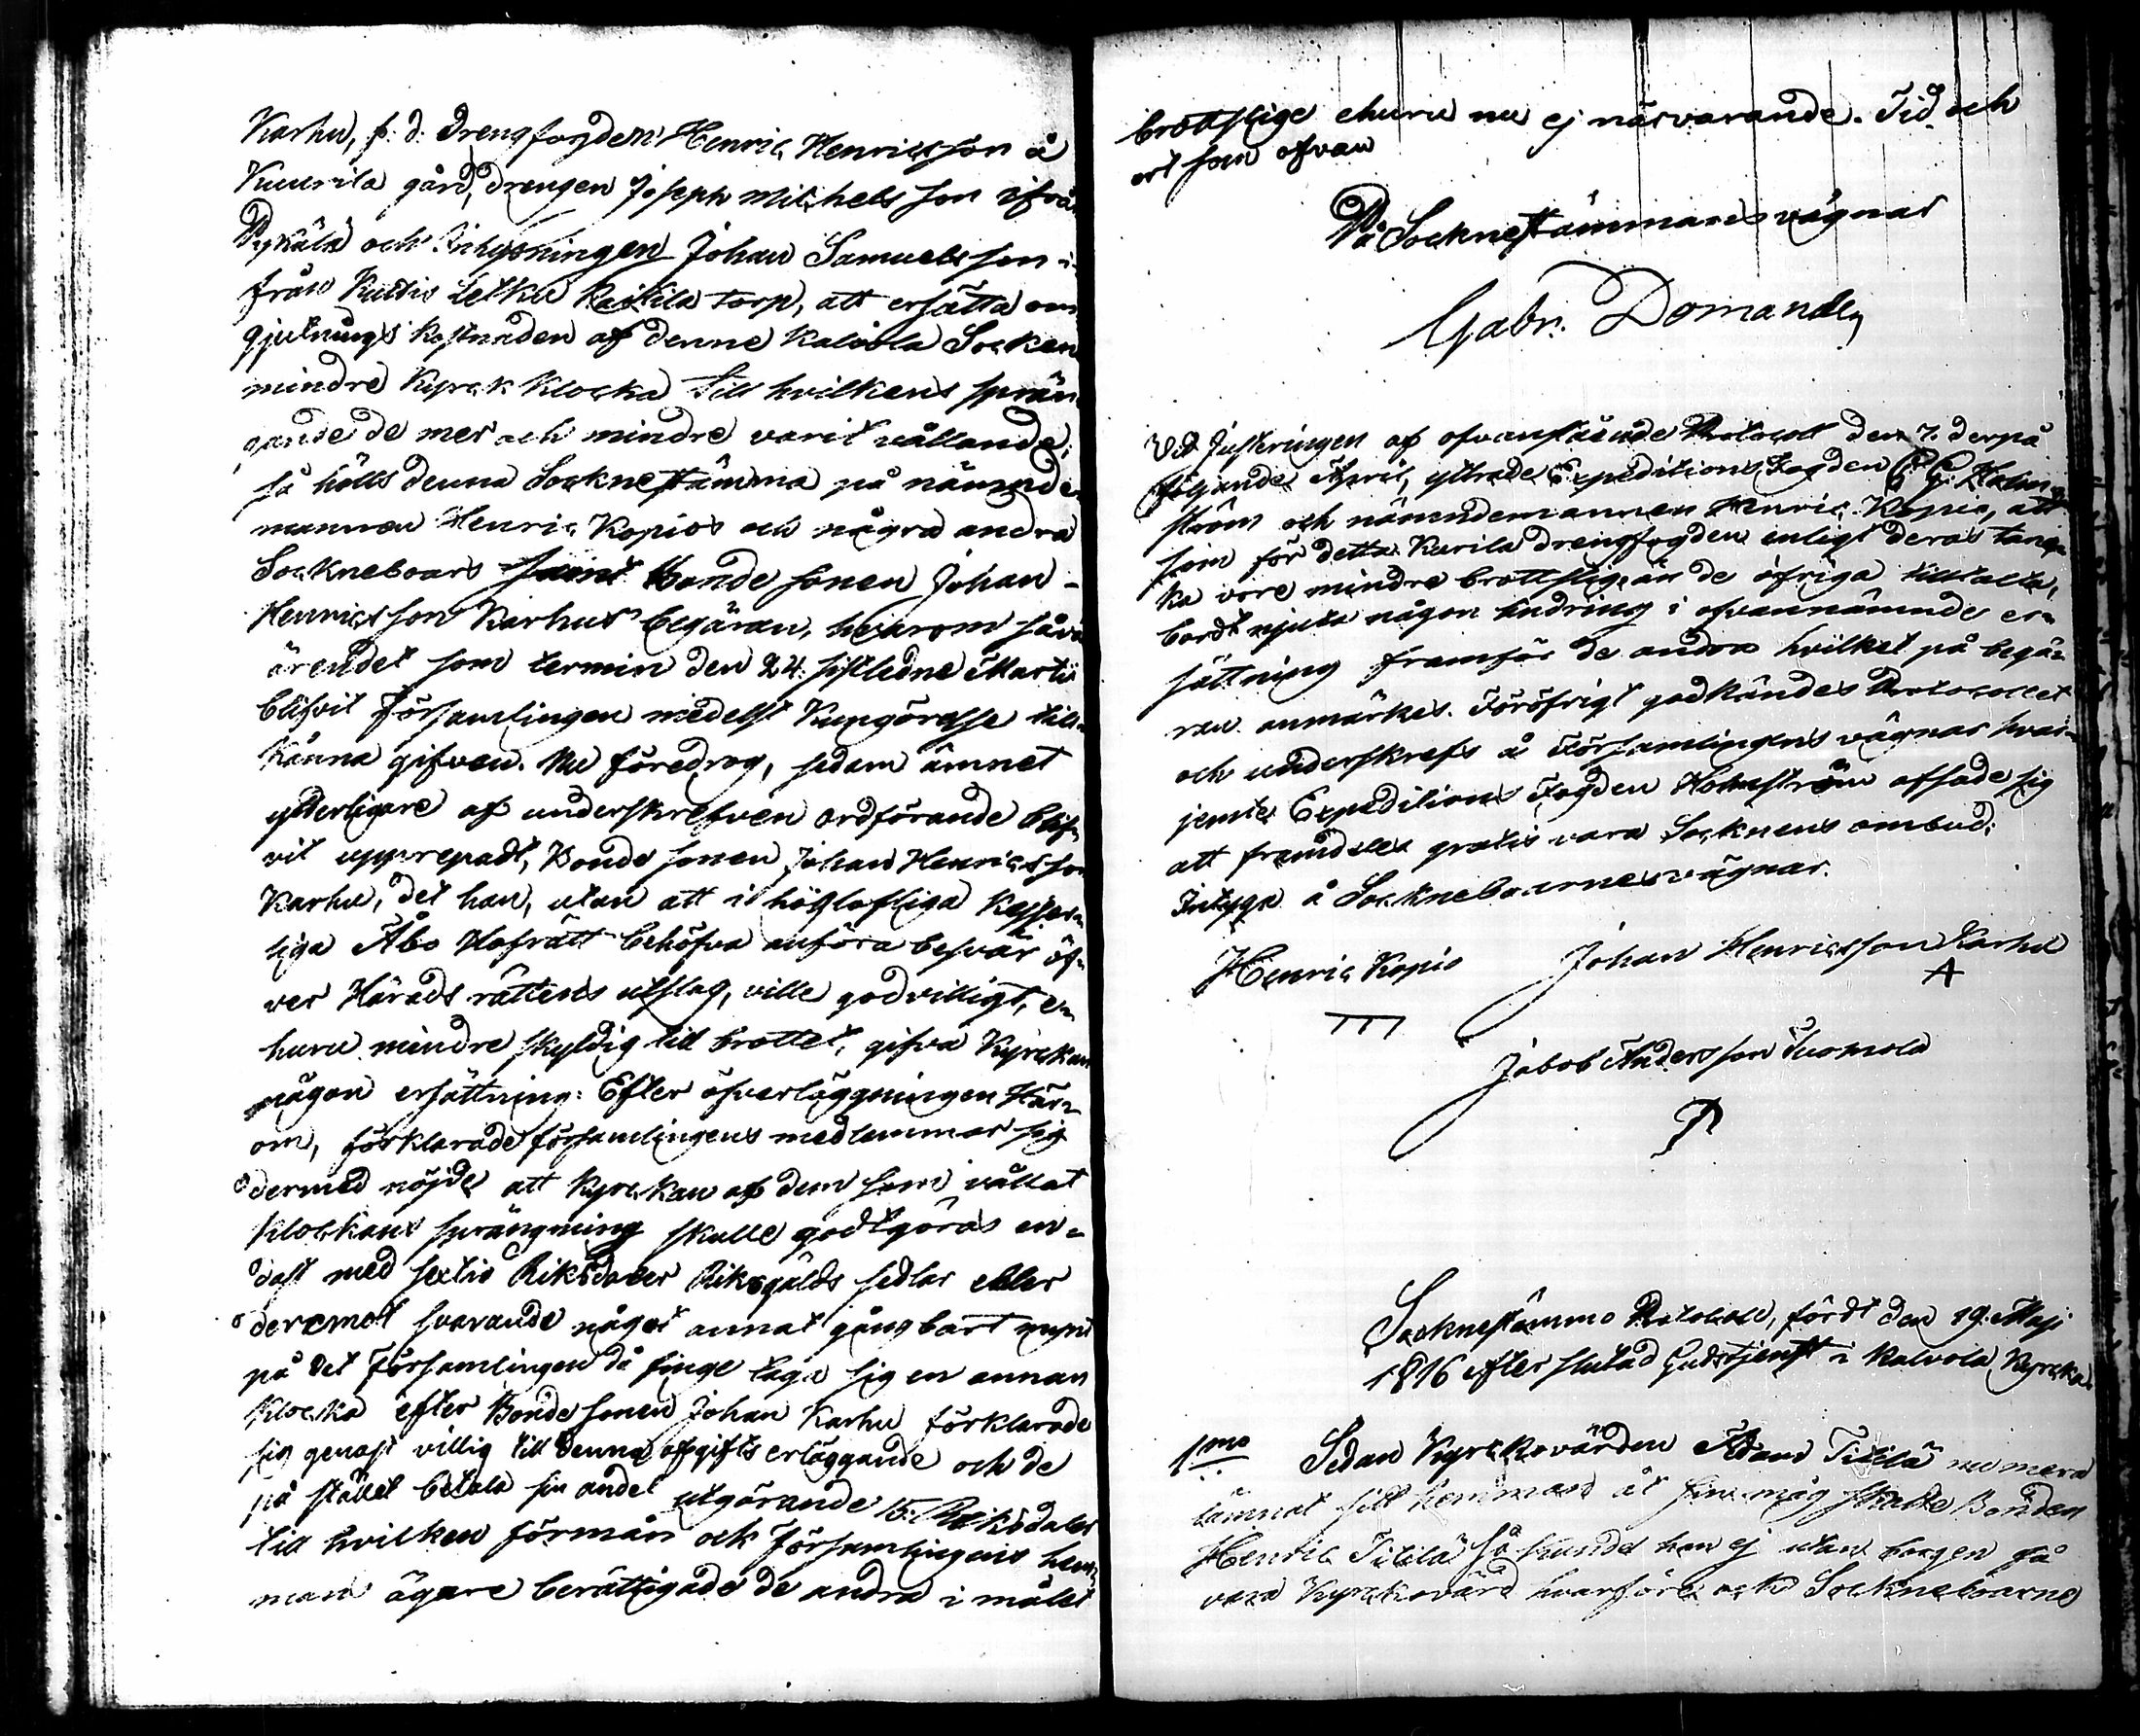 Karhu, f. d. Drengfogden Henric Henricsson å
Kuurila gård, Drengen Joseph Michelsson ifrån
Pykälä och Inhysningen Johan Samuelsson i-
från Kuttis Letku Raikila torp, att ersätta om
gjutnings kostnaden af denne Kalvola Socken
mindre Kyrck Klocka till hvilkens sprän-
gande de mer och mindre varit vållande;
så hölls denna Sockne stämma på nämnde-
mannen Henric Kopios och några andra
Sockneboars samt Bonde sonen Johan
Henricsson Karhus begäran, hvarom såväl
ärendet som termin den 24. sistledne Martii
blifvit Församlingen medelst Kungörelse till-
känna gifven. Nu föredrog, sedan ämnet
ytterligare af underskrefven ordförande blif-
vit upprepadt, Bonde sonen Johan Henricsson
Karhu, det han, utan att i höglofliga Kejser-
liga Åbo Hofrätt behöfva anföra besvär öf-
ver Härads rättens utslag, ville godvilligt, e-
huru mindre skyldig till brottet, gifva Kyrckan
någon ersättning: Efter öfverläggningen Här-
om, förklarade församlingens medlemmar sig
dermed nöjde att Kyrckan af dem som vållat
Klockans sprängning skulle godtgöras en-
dast med sextio Riksdaler Riksgälds sedlar eller
deremot svarande något annat gångbart mynt
på det Församlingen då finge laga sig en annan
Klocka efter Bonde sonen Johan Karhu förklarade
sig genast villig till denna afgifts erläggande och de
på stället betala sin andel utgörande 15. Riksdaler
till hvilken förmån och Församlingens hem-
mans ägare berättigade de andra i målet
brottslige ehuru nu ej närvarande. Tid och
ort som ofvan
På Socknestämmans vägnar
Gabr. Domander
Vid Justeringen af ofvanstående Protocoll den 7. derpå
följande April, yttrade Expeditions Fogden C. G. Holm-
ström och nämndemannen Henric Kopio, att
som för detta Kurila drengfogden enligt deras tan-
ka vore mindre brottslig än de öfriga tilltalta,
bordt njuta någon lindring i ofvannämnde er-
sättning framför de andra hvilket på begä-
ran anmärkes. Föröfrigt godkändes Protocollet
och underskrefs å Församlingens vägnar hvar-
jemte Expeditions Fogden Holmström afsade sig
att framdeles gratis vara Socknens ombud.
Intyga å Sockneboarnes vägnar.
Henric Kopio Johan Henricsson Karhu
Jakob Andersson Tuomola
Socknestämmo Protocoll, fördt den 19. Maji
1816 efter slutad Gudstjenst i Kalvola Kyrcka
1mo Sedan Kyrckovärden Adam Titilä numera
lämnat sitt hemman åt sin måg Bonden
Henric Titilä så kunde han ej utan borgen få
vara Kyrckovärd hvarföre och Sockneboarne